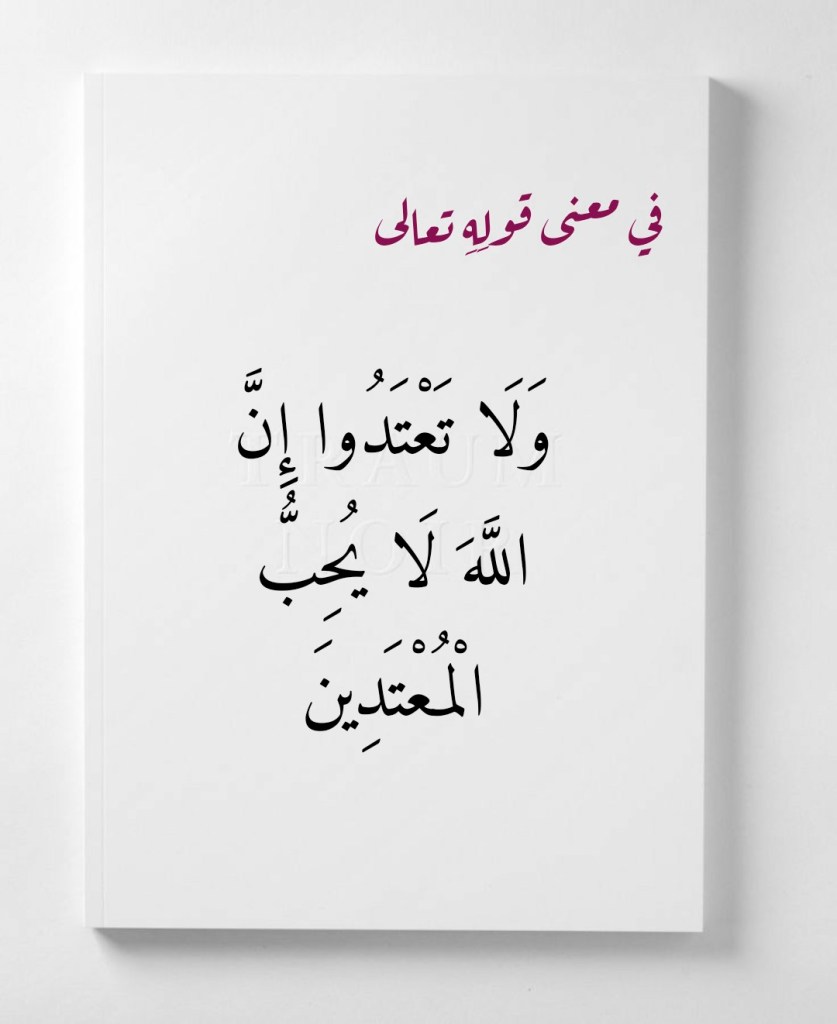 في معنى قولِهِ تعالى
وَلَا تَعْتَدُوا إِنَّ
اللَّهَ لَا يُحِبُّ
الْمُعْتَدِينَ
TRAUM
NOIR